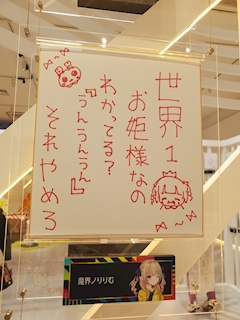 世界1
お姫様なの
わかってる?
『うんうんうん』
それやめろ
魔界ノりりむ